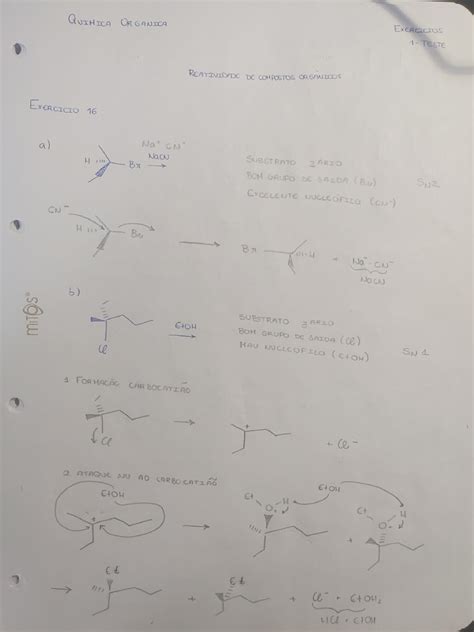 QUIMICA ORGÂNICA
EXERCICIOS
1- TESTE
REATIVIDADE DE COMPOSTOS ORGÂNICOS
EXERCICIO 16
a)
Na⁺ CN⁻
H
Br
NaCN
SUBSTRATO 2ARIO
BOM GRUPO DE SAIDA (Br)
SN2
EXCELENTE NUCLEÓFILO (CN⁻)
CN⁻
H
Br
Br
H
+ Na⁺ CN⁻
NaCN
b)
mitos
Cl
EtOH
SUBSTRATO 3ARIO
BOM GRUPO DE SAIDA (Cl)
MAU NUCLEÓFILO (EtOH)
SN1
1 FORMAÇÃO CARBOCATIÃO
Cl
+
+ Cl⁻
2 ATAQUE NU AO CARBOCATIÃO
EtOH
+
Et
H
O
EtOH
+
Et
H
O
+
+
Cl⁻ + EtOH₂
HCl + EtOH